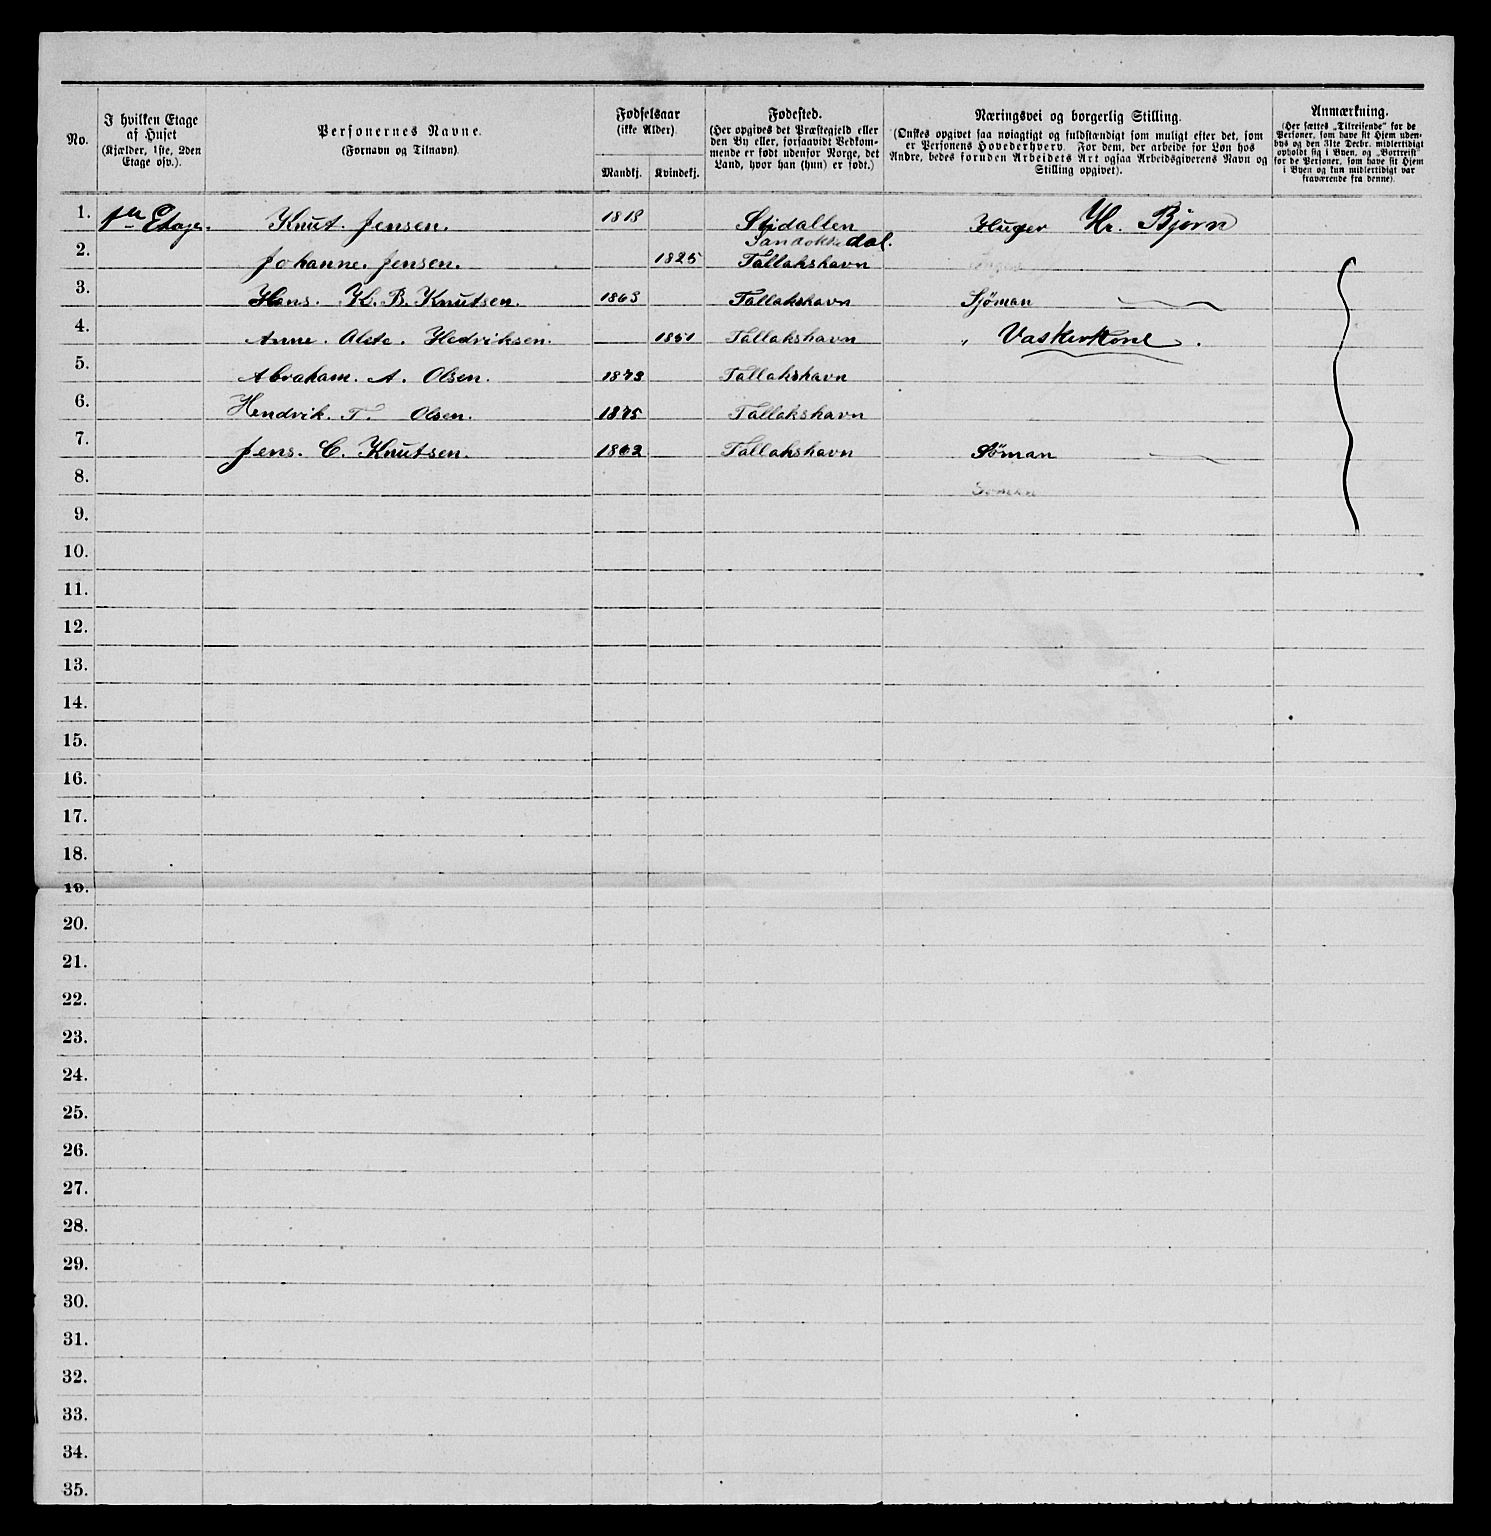 No.
I hvilken Etage
af Huset
(Kjælder, 1ste, 2den
Etage osv.).
Personernes Navne.
(Fornavn og Tilnavn)
Fødselsaar
(ikke Alder)
Mandkj. Kvindekj.
Fødested.
(Her opgives det Præstegjeld eller
den By eller, forsaavidt Vedkom-
mende er født udenfor Norge, det
Land, hvor han (hun) er født.)
Næringsvei og borgerlig Stilling.
(Ønskes opgivet saa nøiagtigt og fuldstændigt som muligt efter det, som
er Personens Hovederhverv. For dem, der arbeide for Løn hos
Andre, bedes foruden Arbeidets Art ogsaa Arbeidsgiverens Navn og
Stilling opgivet).
Anmærkning.
(Her sættes „Tilreisende" for de
Personer, som have sit Hjem uden-
bys og den 31te Decbr. midlertidigt
opholdt sig i Byen, og „Bortreist"
for de Personer, som have sit Hjem
i Byen og kun midlertidigt var
fraværende fra denne).
1. 1ste Etage. Knut. Jensen. 1818 Stidallen Huger Hr. Bjorn
Sandokkedal.
2. Johanne. Jensen. 1825 Tallakshavn
3. Hans. K. B. Knutsen. 1863 Tallakshavn Sjöman
4. Anne. Olete. Hedriksen. 1851 Tallakshavn Vaskerkone.
5. Abraham. A. Olsen. 1873 Tallakshavn
6. Hendrik. T. Olsen. 1875 Tallakshavn
7. Jens. C. Knutsen. 1862 Tallakshavn Söman
8.
9.
10.
11.
12.
13.
14.
15.
16.
17.
18.
19.
20.
21.
22.
23.
24.
25.
26.
27.
28.
29.
30.
31.
32.
33.
34.
35.